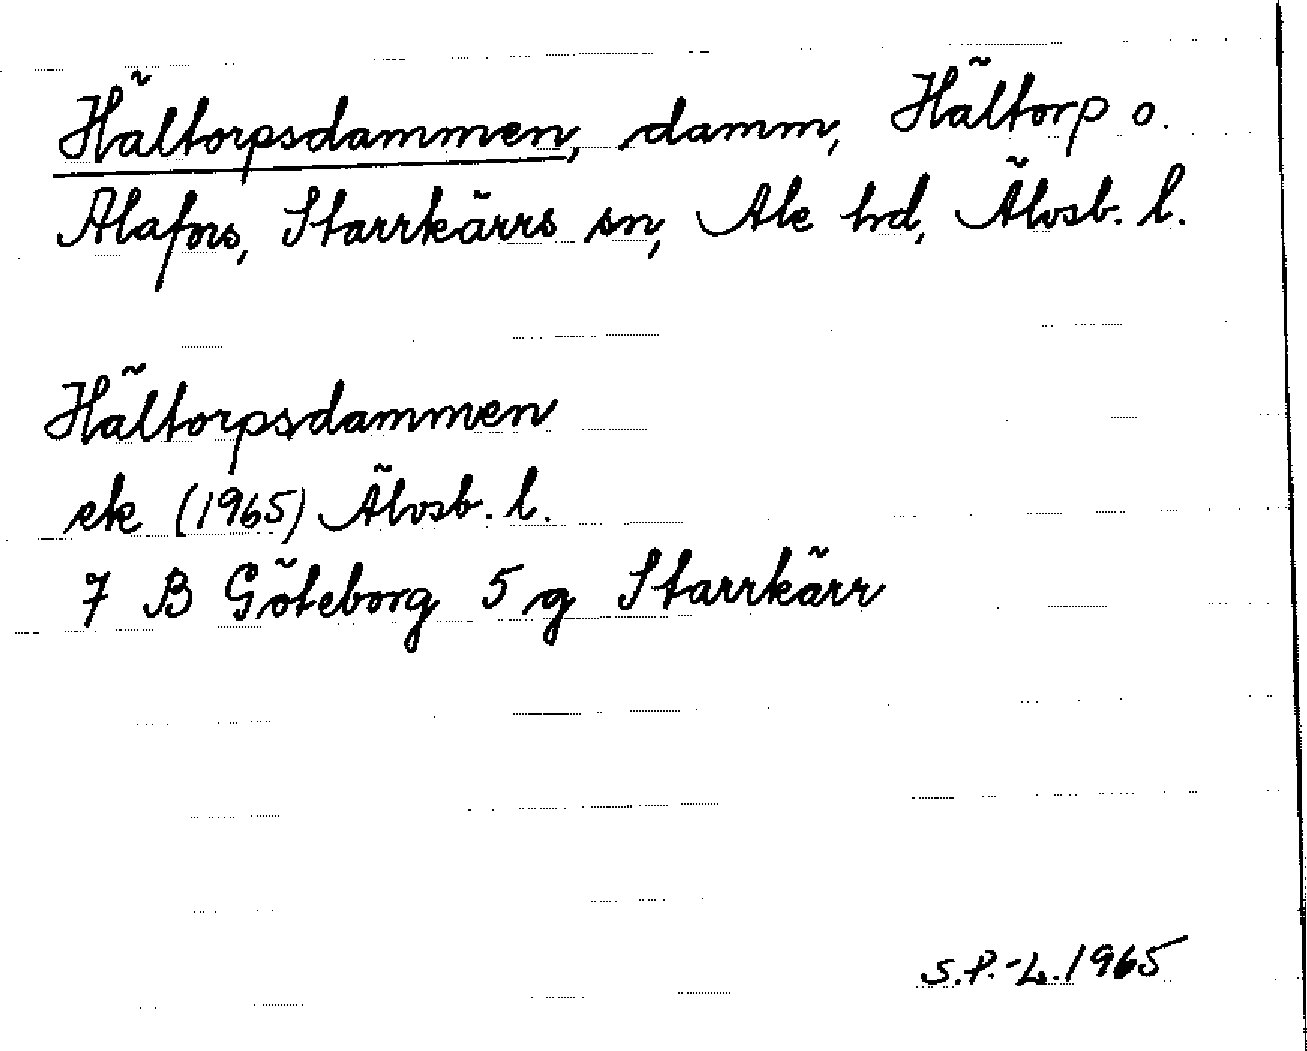 Hältorpsdammen, damm, Hältorp o.
Alafors, Starrkärrs sn, Ale hd, Älvsb. l.
Hältorpsdammen
ek (1965) Älvsb. l.
7 B Göteborg 5 g Starrkärr
S.P.-L. 1965